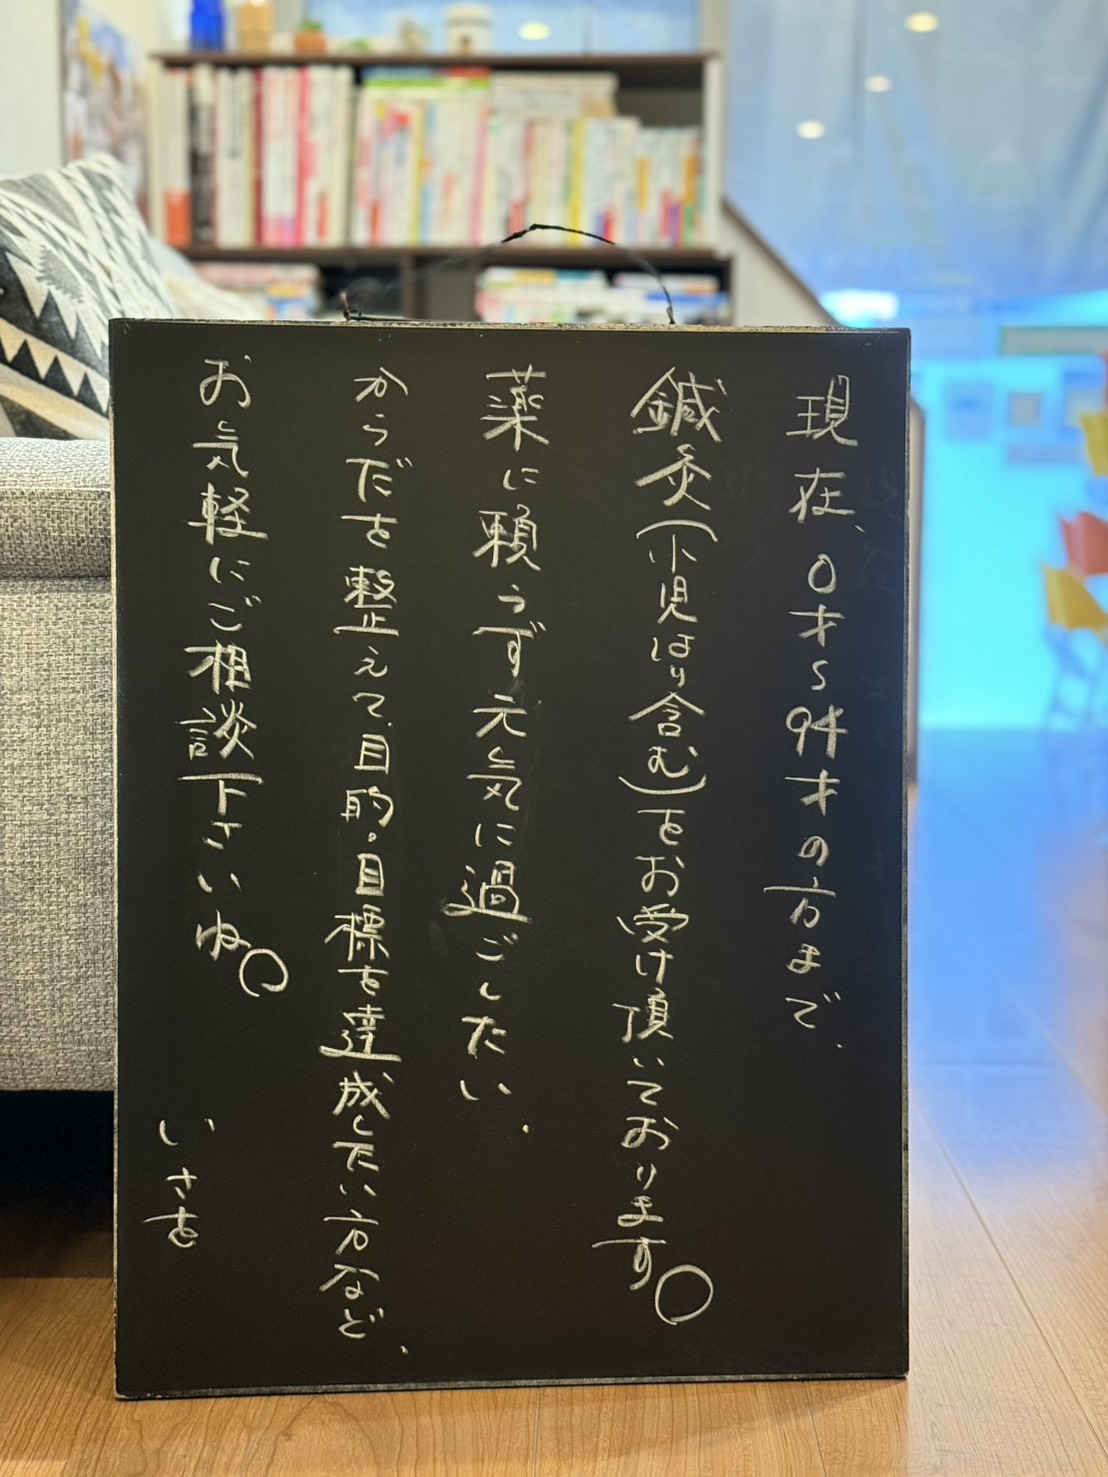 現在、0才〜94才の方まで、
鍼灸(小児はり含む)をお受け頂いております。
薬に頼らず元気に過ごしたい、
からだを整えて、目的・目標を達成したい方など、
お気軽にご相談下さいね。
いさを